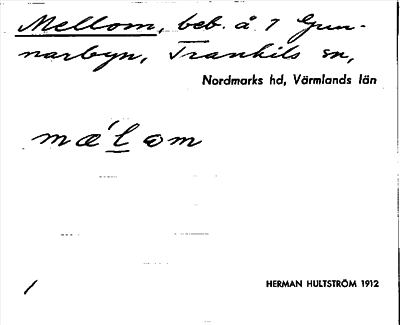 Mellom, beb. å 7 Gun-
narbyn, Trankils sn,
Nordmarks hd, Värmlands län
mæ´lɷm
/
HERMAN HULTSTRÖM 1912